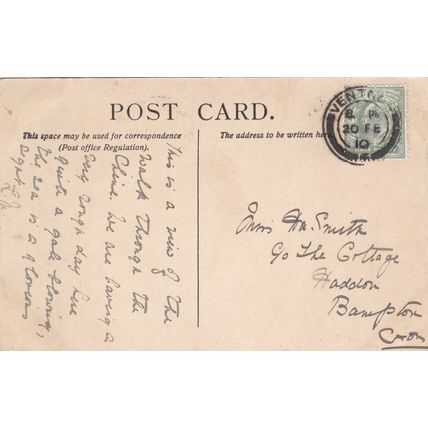 POST CARD.
This space may be used for correspondence
(Post office Regulation).
The address to be written here
VENTNOR
8 PM
20 FE
10
This is a view of the
walk through the
Chine. We are having a
very rough day here
quite a gale blowing,
the sea is a glorious
sight
Miss H. Smith
c/o The Cottage
Haddon
Bampton
Oxon